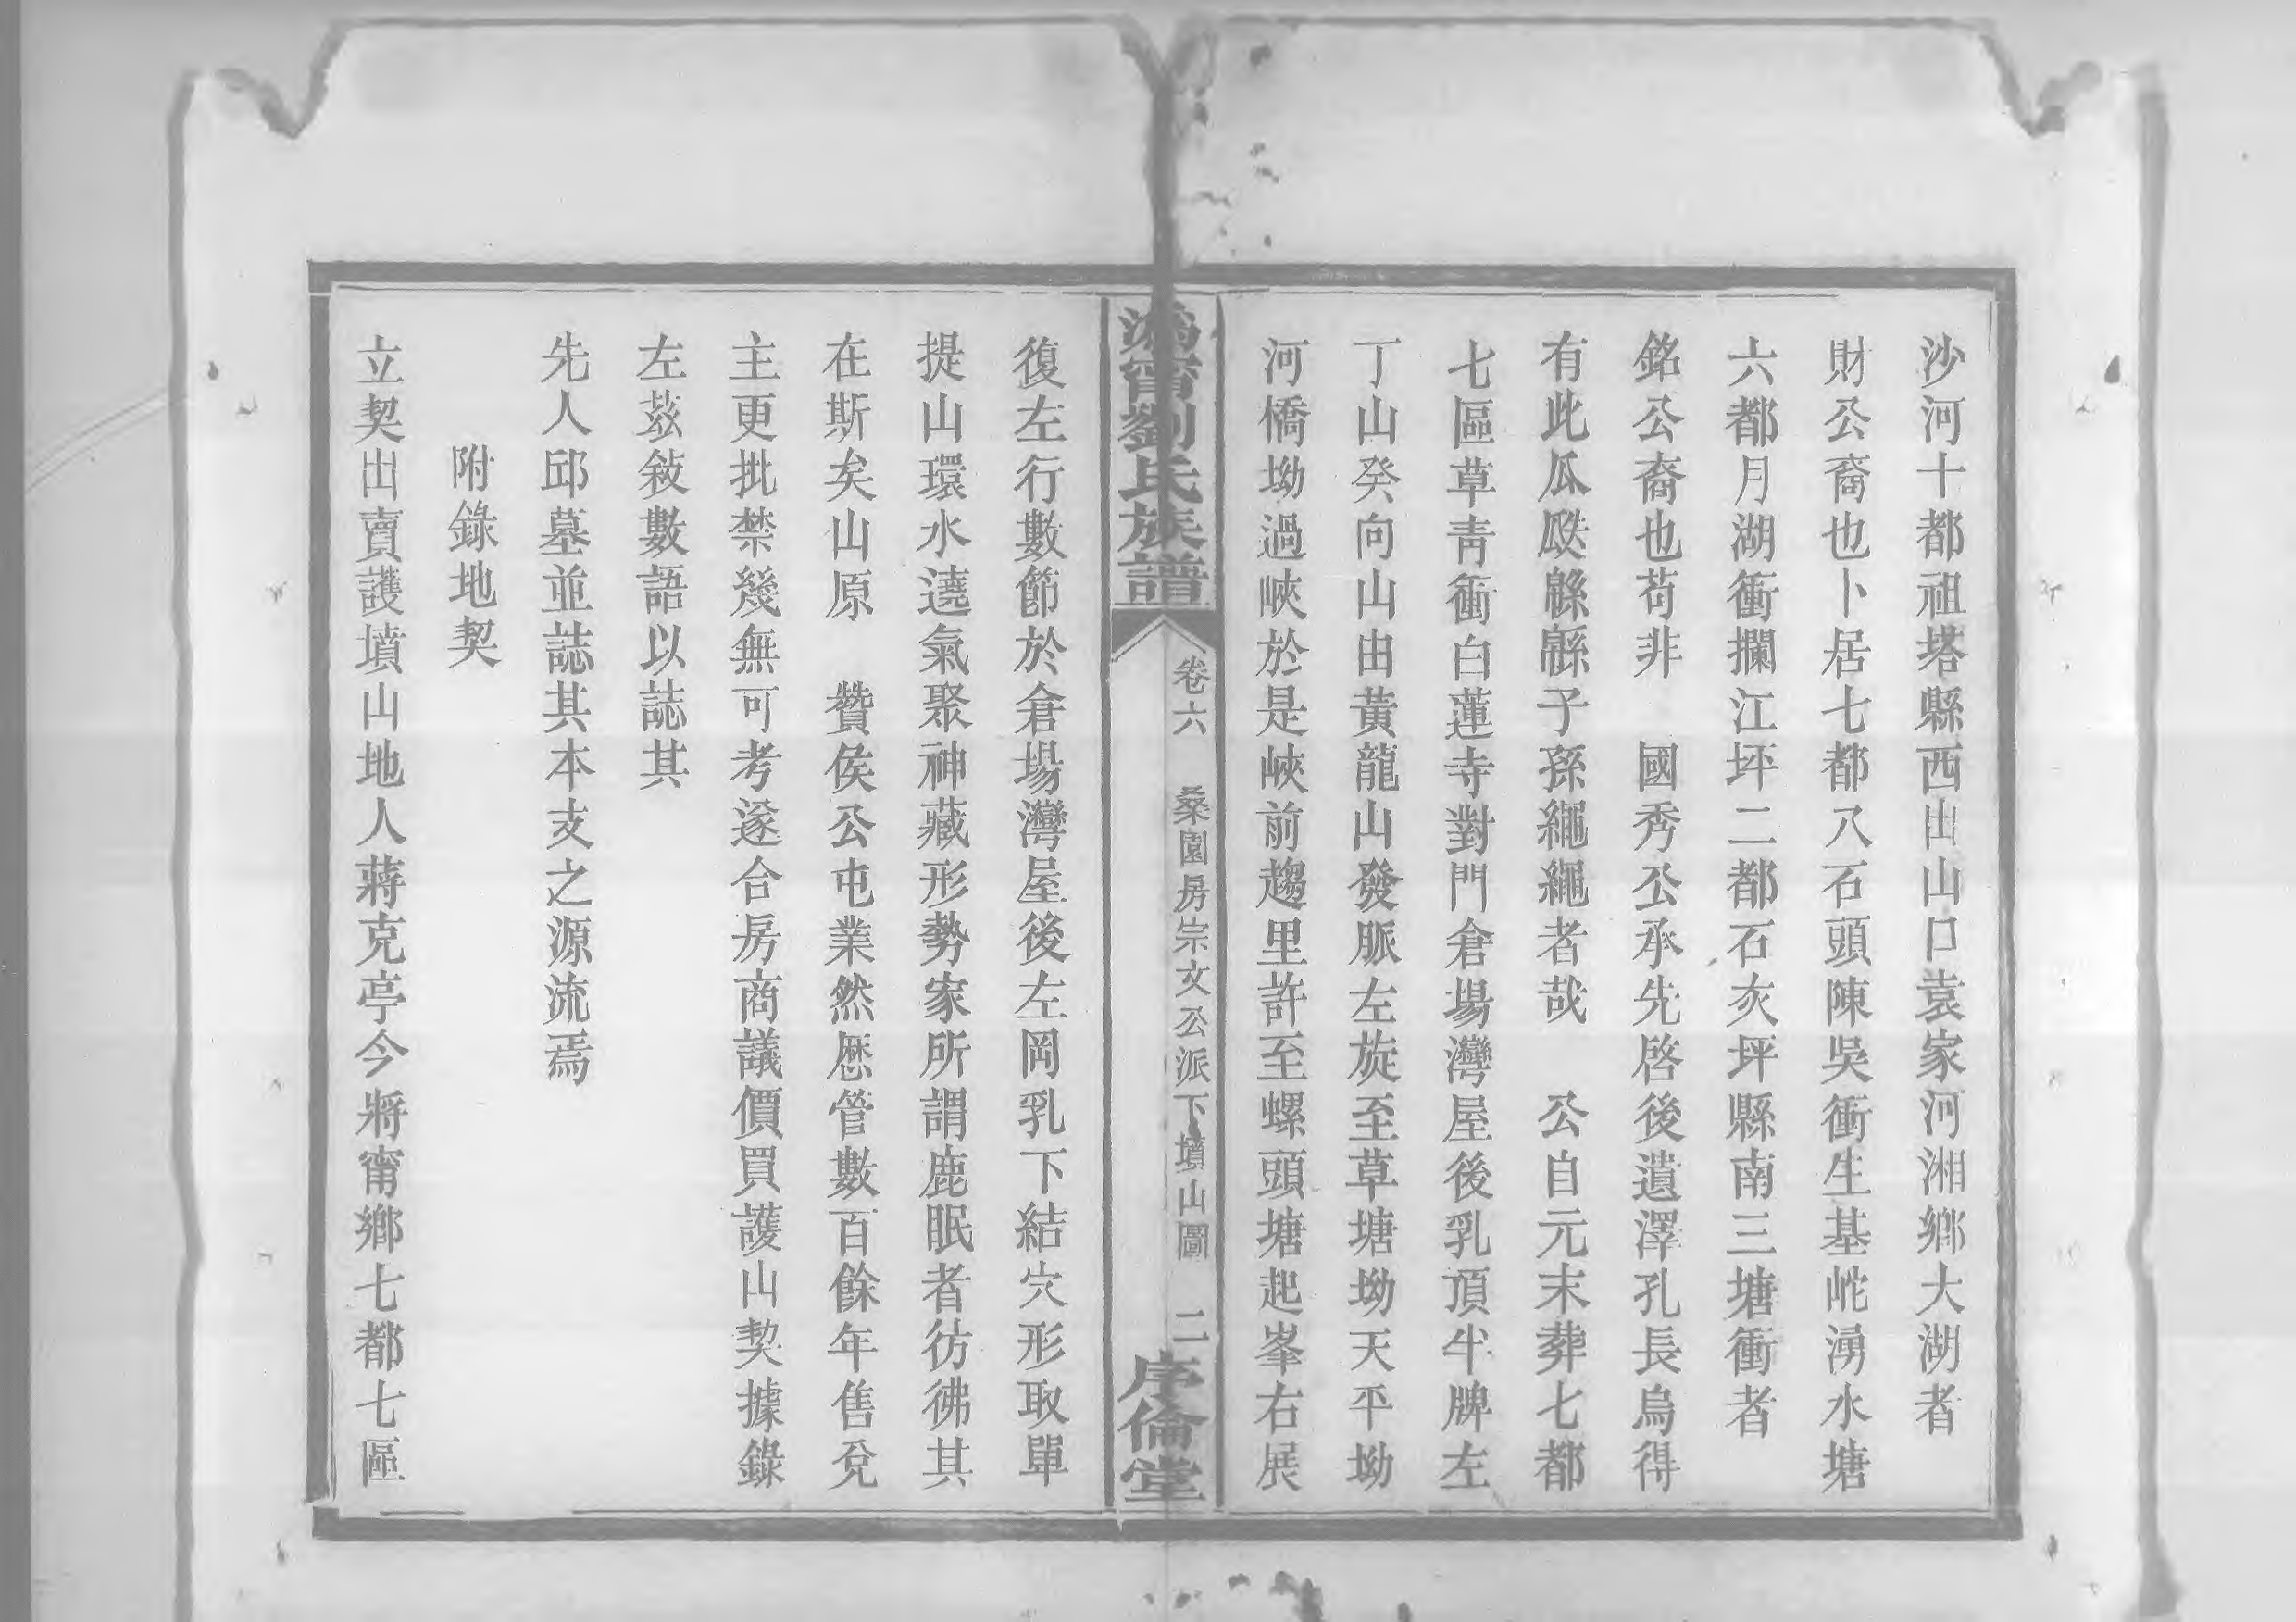 沙河十都祖塔縣西出山口袁家河湘鄉大湖者
財公裔也卜居七都八石頭陳吳衝生基岮湧水塘
六都月湖衝攔江坪二都石灰坪縣南三塘衝者
銘公裔也苟非　國秀公承先啓後遺澤孔長烏得
有此瓜瓞緜緜子孫繩繩者哉　公自元末葬七都
七區草靑衝白蓮寺對門倉場灣屋後乳頂牛牌左
丁山癸向山由黃龍山發脈左旋至草塘坳天平坳
河橋坳過峽於是峽前趨里許至螺頭塘起峯右展
溈甯劉氏族譜
卷六　桑園房宗文公派下墳山圖　二
序倫堂
復左行數節於倉場灣屋後左岡乳下結穴形取單
提山環水遶氣聚神藏形勢家所謂鹿眠者彷彿其
在斯矣山原　贊侯公屯業然歷管數百餘年售兌
主更批禁幾無可考遂合房商議價買護山契據錄
左茲敘數語以誌其
先人邱墓並誌其本支之源流焉
附錄地契
立契出賣護墳山地人蔣克亭今將甯鄉七都七區